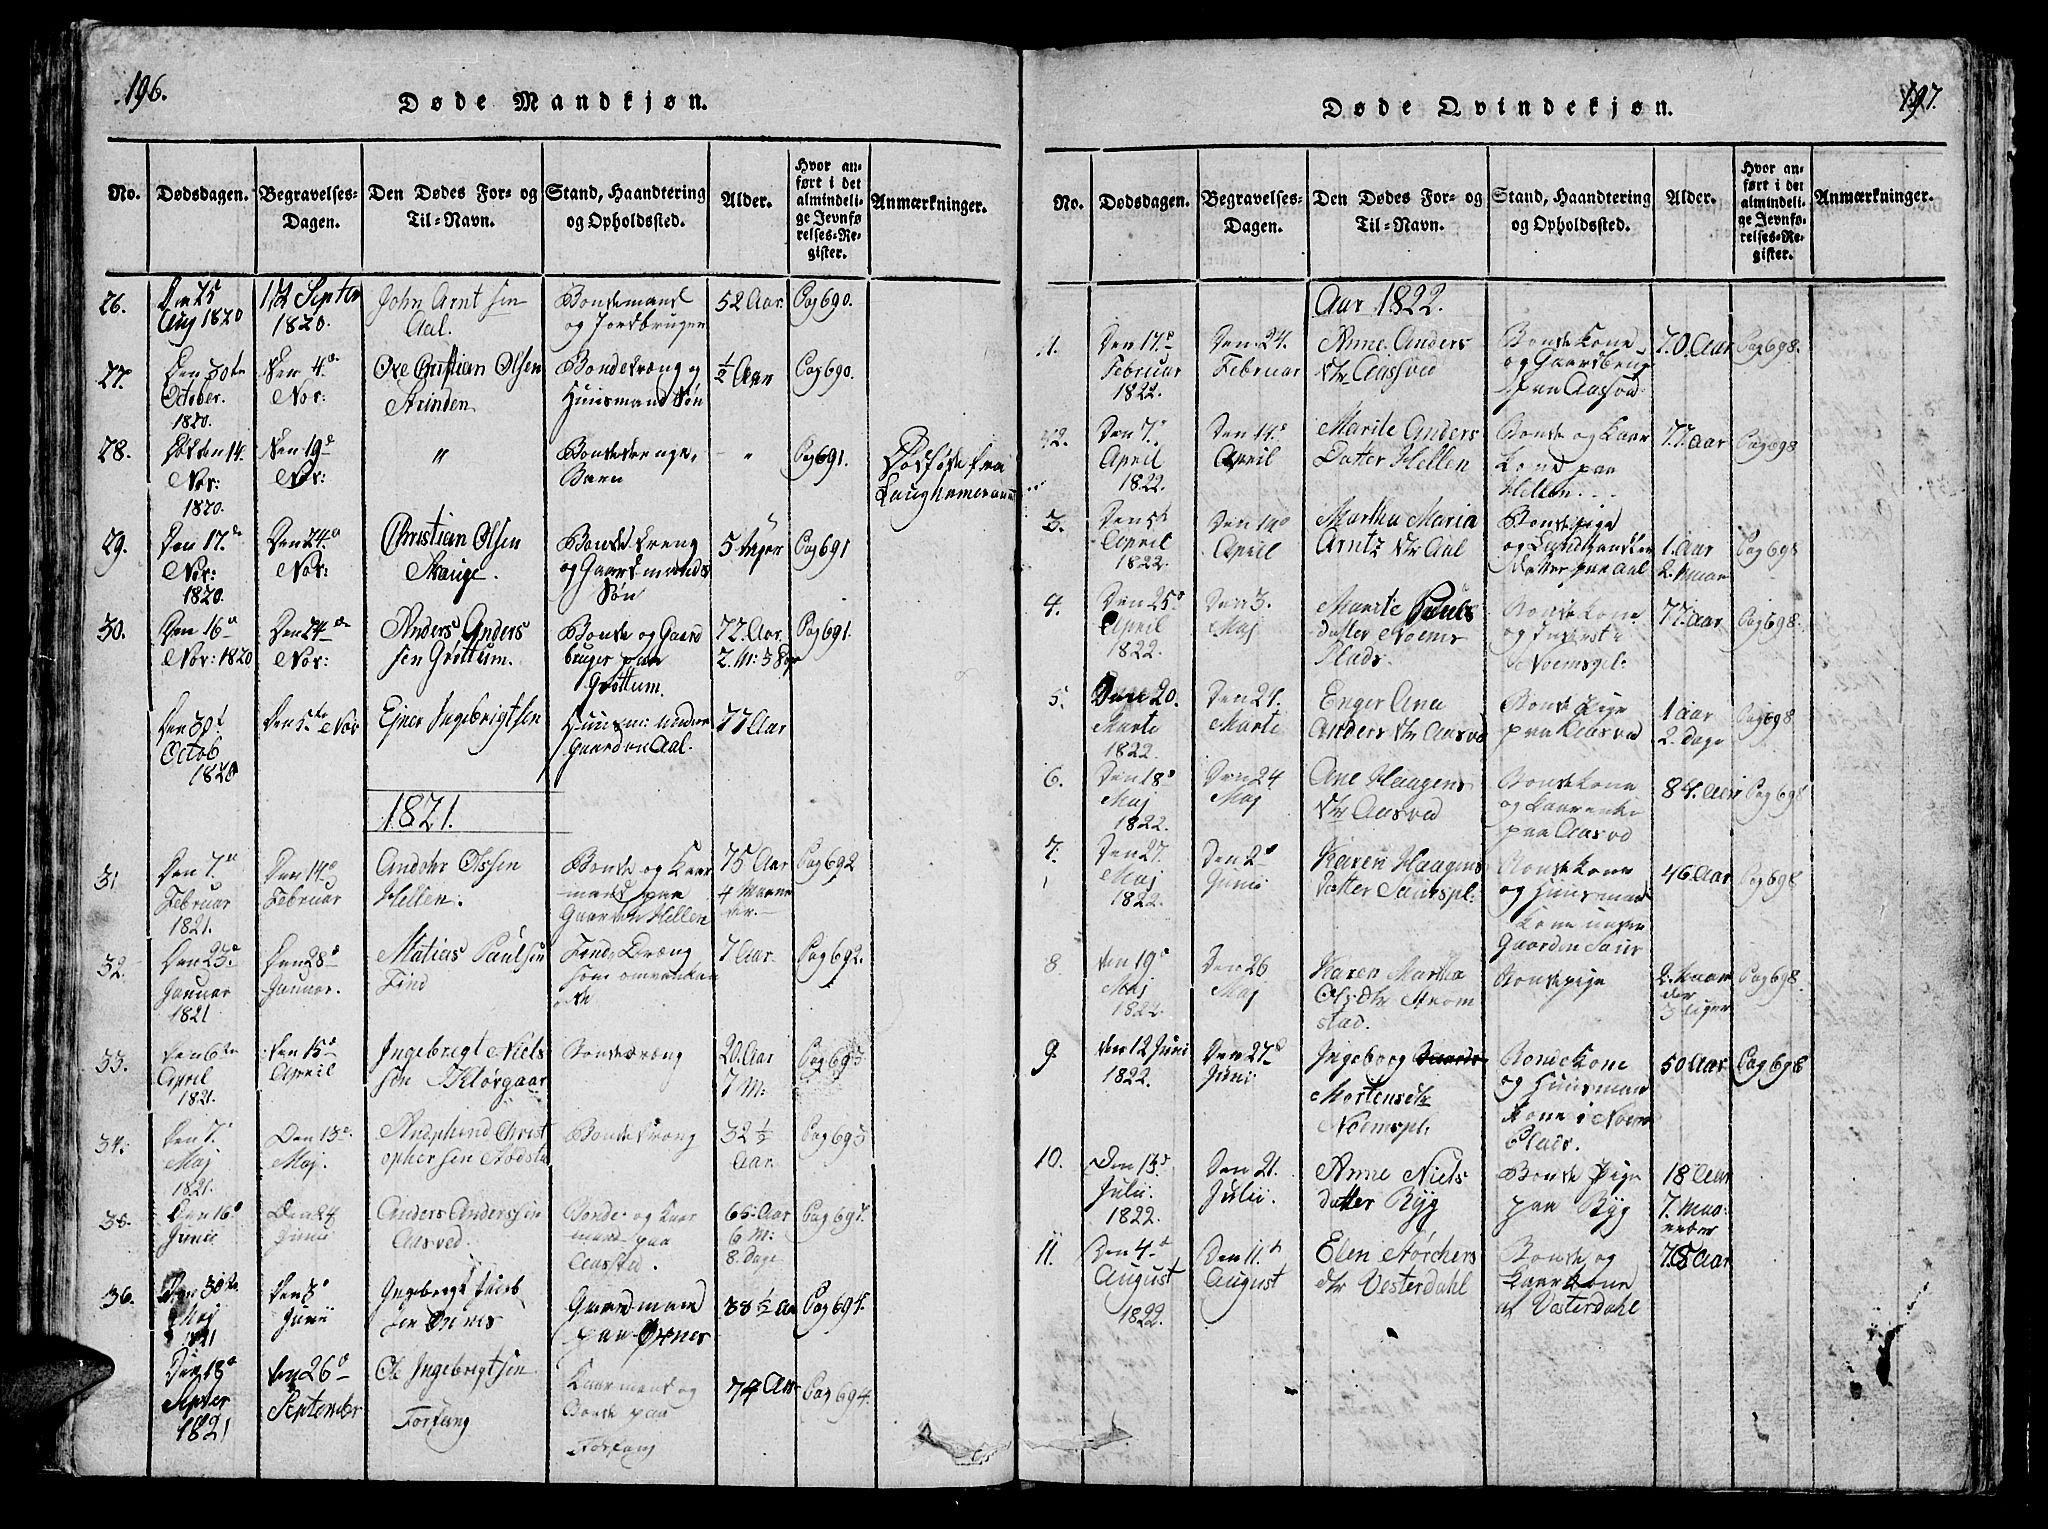 196.
Døde Mandkjøn.
No.
Dødsdagen.
Begravelses-
Dagen.
Den Dødes For- og
Til-Navn.
Stand, Haandtering
og Opholdssted.
Alder.
Hvor an-
ført i det
almindeli-
ge Jevnfø
relses-Re-
gister.
Anmærkninger.
26.
Den 25
Aug 1820
Septbr
1820.
John Arnt sen
Aal.
Bondemand
og Jordbruger
52 Aar.
Pag 690.
27.
Den 30te
October.
1820.
Den 4de
Nov:
Christian Olsen
Bondedræng og
Huusmand Søn
½ Aar
Pag 690.
28.
Den 14.
Nov:
1820.
Den 19de
Nov:
"
Bondedrenge-
Barn
"
Pag 691.
Dødføde fra
29.
Den 17.de
Nov:
1820.
Den 24de
Nov:
Christian Olsen
Bondedreng
og Gaardmands
Søn
5
Pag 691
30.
Den 16de
Nov: 1820
Den 24de
Nov:
Anders Anders
sen Grøttum.
Bonde og Gaard
bruger paa
Grøttum.
72. Aar.
2. M:
Pag 691.
Den 30te
Octob
1820
Den 5te Nov
Ejner Ingebrigtsen
Huusm: under
Gaarden Aal.
77 Aar
1821.
31
Den 7de
Februar
1821.
Den 14de
Februar
Olssen
Hellen.
Bonde og Kaar
mand paa
Gaarden Hellen
75 Aar
4 Maane
der.
Pag 692
32.
Den 23de
Januar
1821
Den 28de
Januar.
Matias Paulsen
Find
Find Dræng
som omvanken
de
7 Aar.
Pag 692.
33.
Den 6te
April
1821.
Den 15de
April
Ingebregt Niels
sen
Bondedræng
20. Aar
7 M:
Pag 693
34.
Den 7.
Maj
1821.
Den 13de
Maj.
Christ
ophersen
Bondedræng
32 ½
Aar.
Pag 693
35.
Den 16de
Junii
Den 24
Junii
Anders Anderssen
Aasved.
Bonde og Kaar
mand paa
Aasved.
65. Aar
6 M:
8. Dage
Pag 694.
36.
Den 30te
Maj
1821
Den 3de
Junii
Ingebregt Jacob
sen Ørnes
Gaardmand
paa Ørnes
38 ½ Aar
Pag 694.
Den 18de
Septbr
1821
Den 26de
September
Ole Ingebrigtsen
Forfang
Kaarmand og
Bonde paa
Forfang
74 Aar
Pag 694.
197.
Døde Qvindekjøn.
No.
Dødsdagen.
Begravelses-
Dagen.
Den Dødes For- og
Til-Navn.
Stand, Haandtering
og Opholdssted.
Alder.
Hvor an-
ført i det
almindeli-
ge Jevnfø-
relses-Re-
gister.
Anmærkninger.
Aar 1822.
1.
Den 17de
Februar
1822.
Den 24.
Februar
Anne Anders
dtr Aasvod
Bondekone
og Gaardbrug
paa Aasvod
70. Aar
Pag 698.
2.
Den 7de
April
1822.
Den 14de
April
Marite Anders
Datter Hellen
Bonde og Kaar
Kone paa
Hellen.
77. Aar
Pag 698
3.
Den 5te
April
1822.
Den 14de
April
Martha Maria
Arntz dtr Aal
Bondepige
og Landhandler
Datter paa Aal
1. Aar
2. Maan
Pag 698
4.
Den 25de
April
1822.
Den 3.
Maj
Marite Pauls
datter Noems
Plads.
Bondekone
og Inderste
Noemspl:
77. Aar
Pag 698.
5.
Den 20.
Marti
1822.
Den 24.
Marti
Enger Ana
Anders dtr Aasvod
Bonde Pige
paa Aasvod
1 Aar
2. Dage
Pag 698
6.
Den 18de
Maj
1822.
Den 24
Maj
Ane Haagens
dtr Aasvod
Bondekone
og Kaarenke
paa Aasvod
84. Aar
Pag 698
7.
Den 27.
Maj
1822.
Den 2de
Junii
Karen Haagens
Datter Saurspl:
Bondekone
og Huusmand
kone under
Gaarden Saur
46. Aar
Pag 698
8.
Den 19de
Maj
1822.
Den 26
Maj
Karen Martha
Ols dtr Strom
stad.
Bondepige
2. Maan
der
3 Uger
Pag 698.
9.
Den 12 Juni
1822.
Den 27de
Junii
Ingeborg
Mortensdtr
Noemspl:
Bondekone
og Huusman
Kone i Noem
Plads.
50 Aar
Pag 698
10.
Den 13de
Julii.
1822.
Den 21.
Julii.
Anne Niels
datter Byg
Bonde Pige
paa Byg
18 Aar
7. Maa
neder
11.
Den 4de
August
1822.
Den 11te
August
Elen Nørchers
dtr Vesterdahl
Bonde og
Kaarkone
Vesterdahl
78 Aar